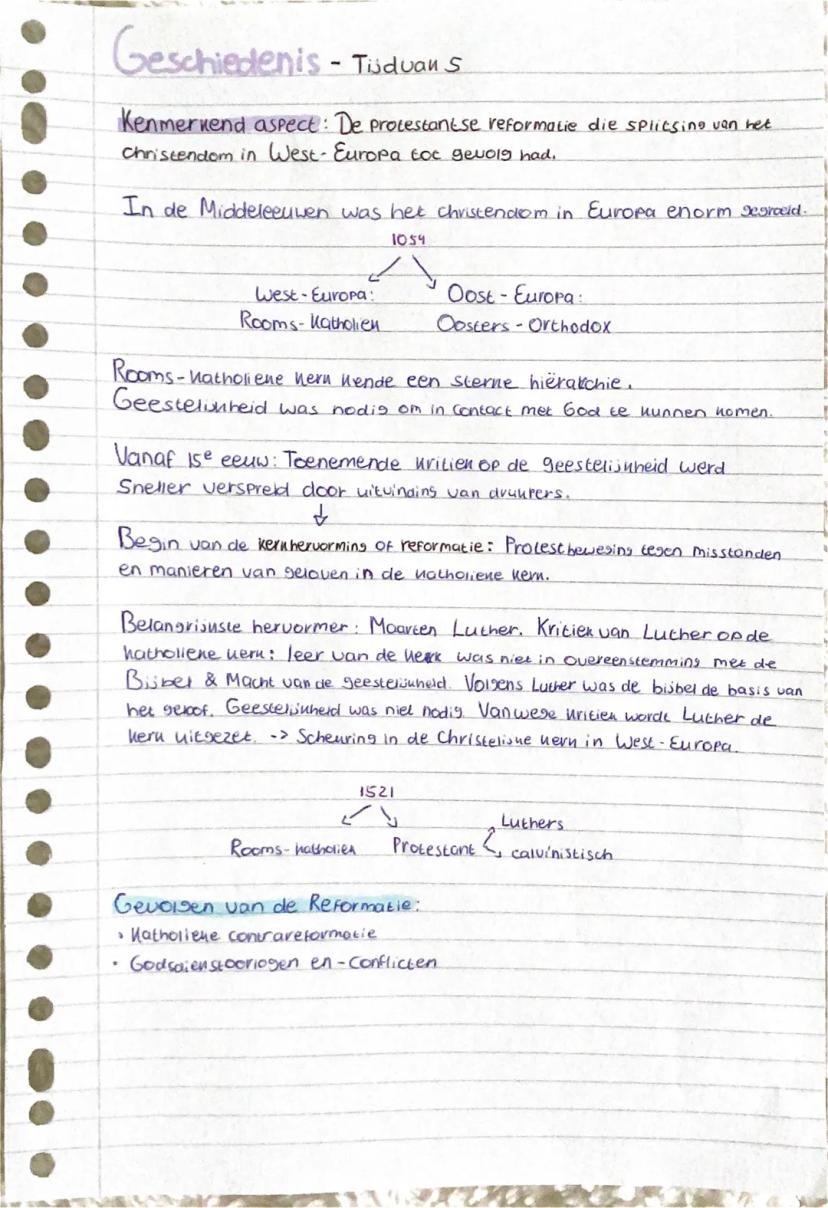 Geschiedenis - Tijdvak 5
Kenmerkend aspect: De protestantse reformatie die splitsing van het
christendom in West-Europa tot gevolg had.
In de Middeleeuwen was het christendom in Europa enorm gegroeid.
1054
West-Europa: Oost-Europa:
Rooms-Katholiek Oosters-Orthodox
Rooms-katholieke kerk kende een sterke hiërakchie.
Geestelijkheid was nodig om in contact met God te kunnen komen.
Vanaf 15e eeuw: Toenemende kritiek op de geestelijkheid werd
sneller verspreid door uitvinding van drukpers.
↓
Begin van de kerkhervorming of reformatie: Protestbeweging tegen misstanden
en manieren van geloven in de katholieke kerk.
Belangrijkste hervormer: Maarten Luther. Kritiek van Luther op de
katholieke kerk: leer van de kerk was niet in overeenstemming met de
Bijbel & Macht van de geestelijkheid. Volgens Luther was de bijbel de basis van
het geloof. Geestelijkheid was niet nodig. Vanwege kritiek wordt Luther de
kerk uitgezet. -> Scheuring in de Christelijke kerk in West-Europa.
1521
Rooms-katholiek Protestant Luthers
calvinistisch
Gevolgen van de Reformatie:
• Katholieke contrareformatie
• Godsdienstoorlogen en -conflicten